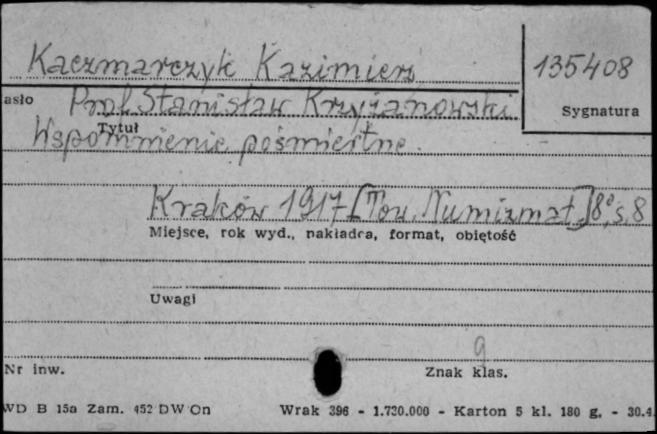 Kaczmarczyk Kazimierz
135408
asło
Prof. Stanisław Krzyżanowski.
Sygnatura
Tytuł
Wspomnienie pośmiertne.
Kraków 1917 [Tow. Numizmat.] 8°, s. 8
Miejsce, rok wyd., nakładca, format, objętość
Uwagi
9
Nr inw.
Znak klas.
WD B 15a Zam. 452 DW On
Wrak 396 - 1.730.000 - Karton 5 kl. 180 g. - 30.4